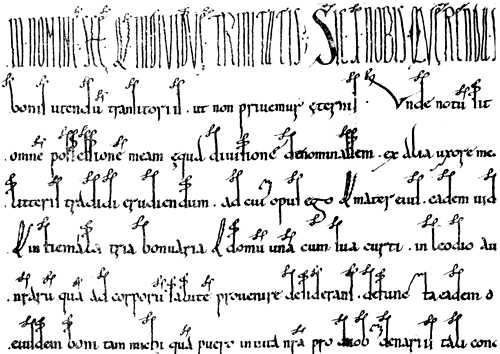 IN NOMINE SCE & INDIVIDUE TRINITATIS. SIC E NOBIS
bonis utendū transitoriis . ut non privemur ęternis . Unde notū sit
omne possessione meam equa divisione denominassem . ex alia uxore me
litteris tradidi erudiendum . ad cuius opus ego & mater eius . eadem vid
& in tria bonuaria & domū unā cum sua curti . in leodio au
qua ad corporis salute provenire desiderans . defuncta eadem
eiusdem boni tam michi quā puero in vita nrā pro denariis tali